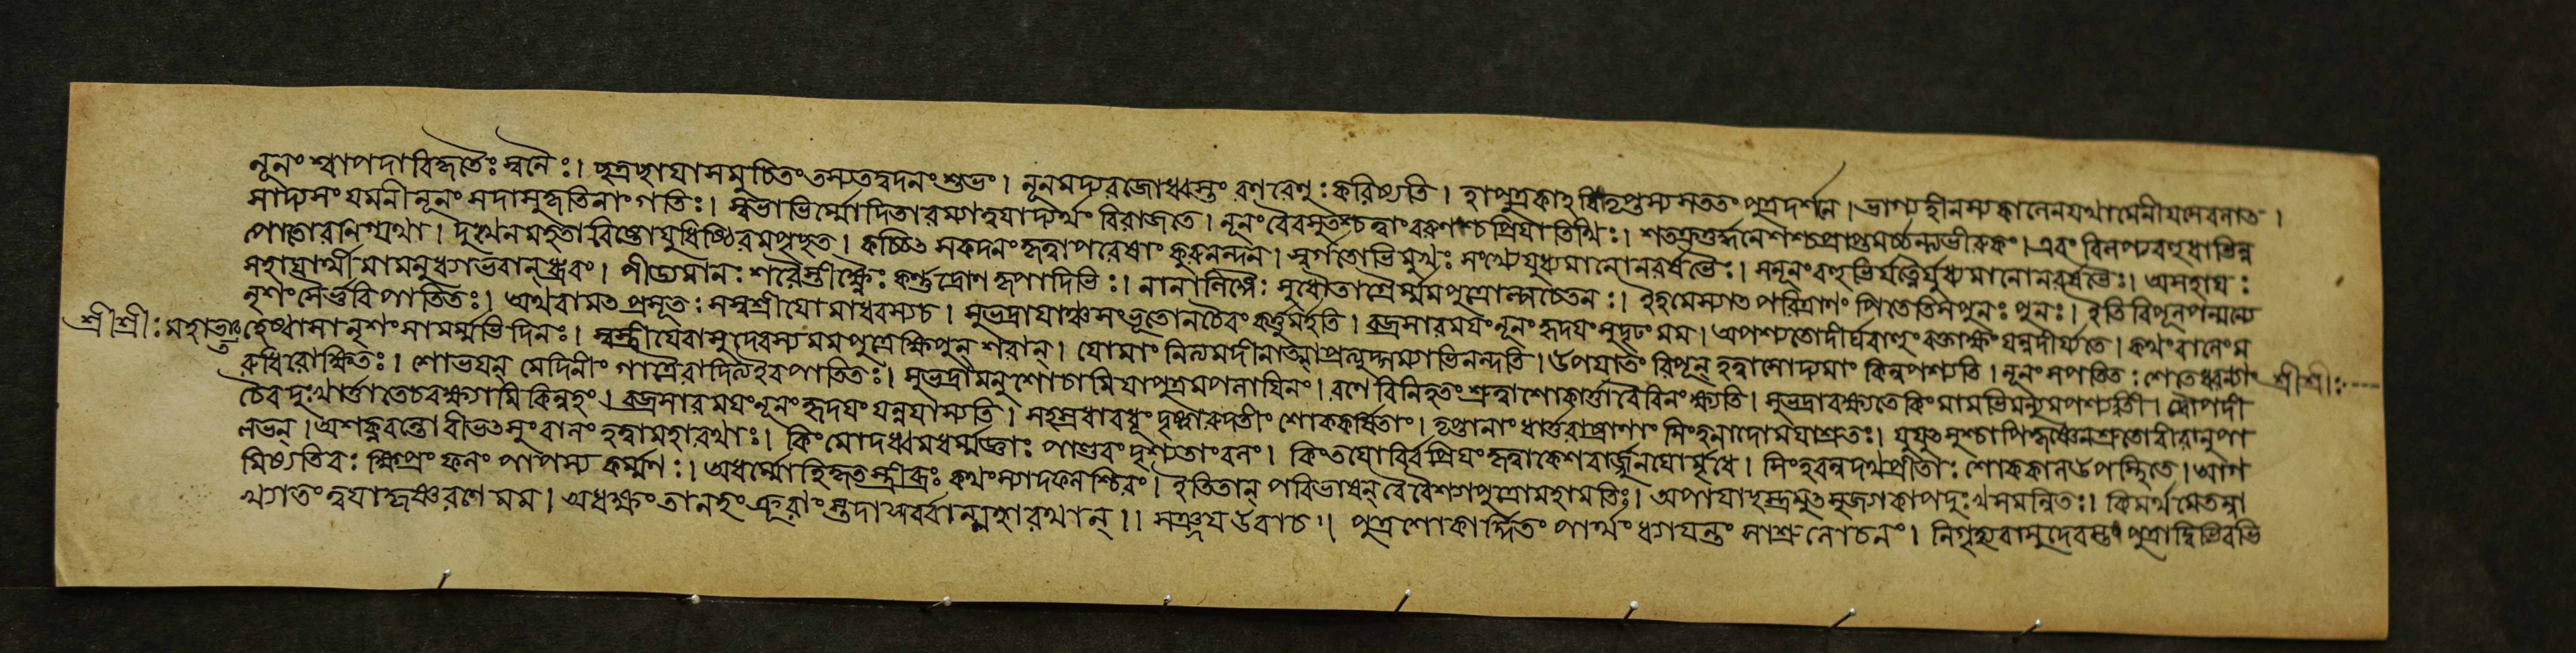 নূনং শ্বাপদা বিকৃতৈঃ স্বনৈঃ। ছত্রছাযাসমুচিতং তস্যতদ্বদনং শুভং। নূনমদ্যরজোধ্বস্তং রণরেণুঃ করিষ্যতি। হাপুত্রকাহ বিতৃপ্তস্য সততং পুত্রদর্শনে। ভাগ্যহীনস্যকালেনযথামেনীযসেবলাত।
সাদ্যসংযমনী নূনং সদাসুকৃতিনাং গতিঃ। স্বভাভির্ম্মোদিতারম্যাত্বযাত্যর্থং বিরাজতে। নূনং বৈবস্বতশ্চত্বাং বরুণশ্চপ্রিযাতিথিং। শতক্রতুর্দ্ধনেশশ্চপ্রাপ্তমর্চ্চন্ত্যভীরুকং। এবং বিলপ্যবহুধাভিন্ন
পোতোবণিগ্যথা। দুঃখেনমহতাবিষ্টোযুধিষ্ঠিরমপৃছত। কচ্চিৎ সকদনং কৃত্বাপরেষাং কুরুনন্দন। স্বর্গতোভিমুখঃ সংখ্যেযুধ্যমানোনরর্ষভৈঃ। সনূনং বহুভির্যত্নৈর্যুধ্যমানোনরর্ষভৈঃ। অসহাযঃ
সহাযার্থী মামনুধ্যাতবান্ ধ্রুবং। পীড্যমানঃ শরৈস্তীক্ষ্ণৈঃ কর্ণদ্রোণকৃপাদিভিঃ। নানালিঙ্গৈঃ সুধৌতাগ্রৈর্ম্মমপুত্রোল্পচেতনঃ। ইহমেস্যাৎ পরিত্রাণং পিতেতিসপুনঃ পুনঃ। ইতি বিলপন্মন্যে
নৃশংসৈর্ভুবি পাতিতঃ। অথবামৎ প্রসূতঃ সস্বস্রীযোমাধবস্যচ। সুভদ্রাযাঞ্চসংভূতোনচৈবং বক্তুমর্হতি। বজ্রসারমযং নূনং হৃদযং সুদৃঢং মম। অপশ্যতোদীর্ঘবাহুং রক্তাক্ষং যন্নদীর্য্যতে। কথং বালেম
শ্রীশ্রীঃ মহাভ হেষ্বাসানৃশংসামর্ম্মভেদিনঃ। স্বস্রীযেবাসুদেবস্য মমপুত্রেক্ষিপন্ শরান্। যোমাং নিত্যমদীনাত্মাপ্রত্যুদ্গম্যাভিনন্দতি। উপযাতং রিপূন্ হত্বাসোদ্যমাং কিন্নপশ্যতি। নূনং সপতিতঃ শেতেধরণ্যাং শ্রীশ্রীঃ
রুধিরোক্ষিতঃ। শোভযন্ মেদিনীং গাত্রৈরাদিত্যইবপাতিতঃ। সুভদ্রামনুশোচামি যাপুত্রমপলাযিনং। রণে বিনিহতং শ্রুত্বাশোকার্ত্তাবৈবিনংক্ষ্যতি। সুভদ্রাবক্ষ্যতেকিং মামভিমন্যুমপশ্যতী। দ্রৌপদী
চৈবদুঃখার্ত্তাতেচবক্ষ্যামি কিন্নহং। বজ্রসারমযং নূনং হৃদযং যন্নযাস্যতি। সহস্রধাবধূং দৃষ্ট্বারুদতীং শোককর্ষিতাং। হৃষ্টানাং ধার্ত্তরাষ্ট্রাণাং সিংহনাদোমযাশ্রুতঃ। যুযুৎসুশ্চাপিকৃষ্ণেনশ্রুতোবীরানুপা
লভন্। অশক্নুবন্তোবীভৎসুং বালং হত্বামহারথাঃ। কিংমোদধ্বমধর্ম্মজ্ঞাঃ পাণ্ডবং দৃশ্যতাং বলং। কিং তযোর্বিপ্রিযং কৃত্বাকেশবার্জ্জুনযোর্মৃধে। সিংহবন্নদথপ্রীতাঃ শোককালউপস্থিতে। আগ
মিষ্যতিবঃ ক্ষিপ্রং ফলং পাপস্য কর্ম্মণঃ। অধর্ম্মোহিকৃতস্তীব্রঃ কথং স্যাদফলশ্চিরং। ইতিতান্ পরিভাষন্ বৈবৈশ্যাপুত্রোমহামতিঃ। অপাযাচ্ছস্ত্রমুৎসৃজ্যকোপদুঃখসমন্বিতঃ। কিমর্থমেতন্না
খ্যাতং ত্বযাকৃষ্ণরণে মম। অধক্ষং তানহং ক্রূরাং স্তদাসর্ব্বান্মহারথান্।। সঞ্জযউবাচ। পুত্রশোকার্দ্দিতং পার্থং ধ্যাযন্তং সাশ্রুলোচনং। নিগৃহ্যবাসুদেবস্তং পুত্রাধিভিরভি